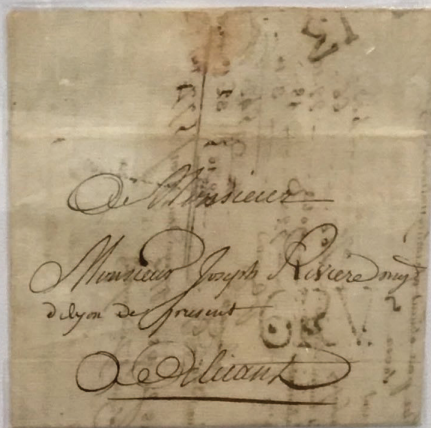 13
A Monsieur
Monsieur Joseph Riviere neg.t
de lyon de present
6RV
A Alicant